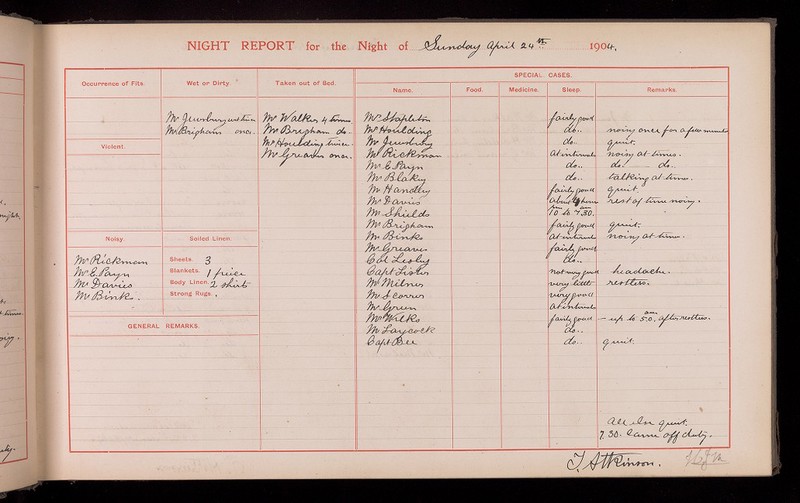 NIGHT REPORT for the Night of Sunday April 24th 1904.
Occurrence of Fits.
Wet or Dirty.
Taken out of Bed.
SPECIAL CASES.
Name.
Food.
Medicine.
Sleep.
Remarks.
Mr Jewsbury
Mr Brigham once.
Mr Walker 4 times
Mr Brigham do..
Mr Houlding twice.
Mr Greaves once.
Violent.
Noisy.
Mr Rickman
Mr E. Payn
Mr Davies
Mr Binks.
Soiled Linen.
Sheets. 3
Blankets. 1 piece
Body Linen. 2 shirts
Strong Rugs.
GENERAL REMARKS.
Mr Stapleton fairly good
Mr Houlding do.. noisy once for a few minutes
Mr Jewsbury do.. quiet.
Mr Rickman at intervals noisy at times.
Mr E. Payn do.. do.. do..
Mr Blakey do.. talking at times.
Mr Handley fairly good quiet.
Mr Davies about hours rest of time noisy.
Mr Shields 10 pm to 7.30. am
Mr Brigham fairly good quiet.
Mr Binks at intervals noisy at times.
Mr Greaves fairly good
Col Lesley do..
Capt Lister not very good headache.
Mr Milnes very little restless.
Mr Scorrer very good
Mr Green at intervals
Mr Wilks fairly good - up to 5.0. am after restless.
Mr Laycock do..
Capt Bee do.. quiet.
All else quiet.
7.30. Came off duty.
T. Atkinson.